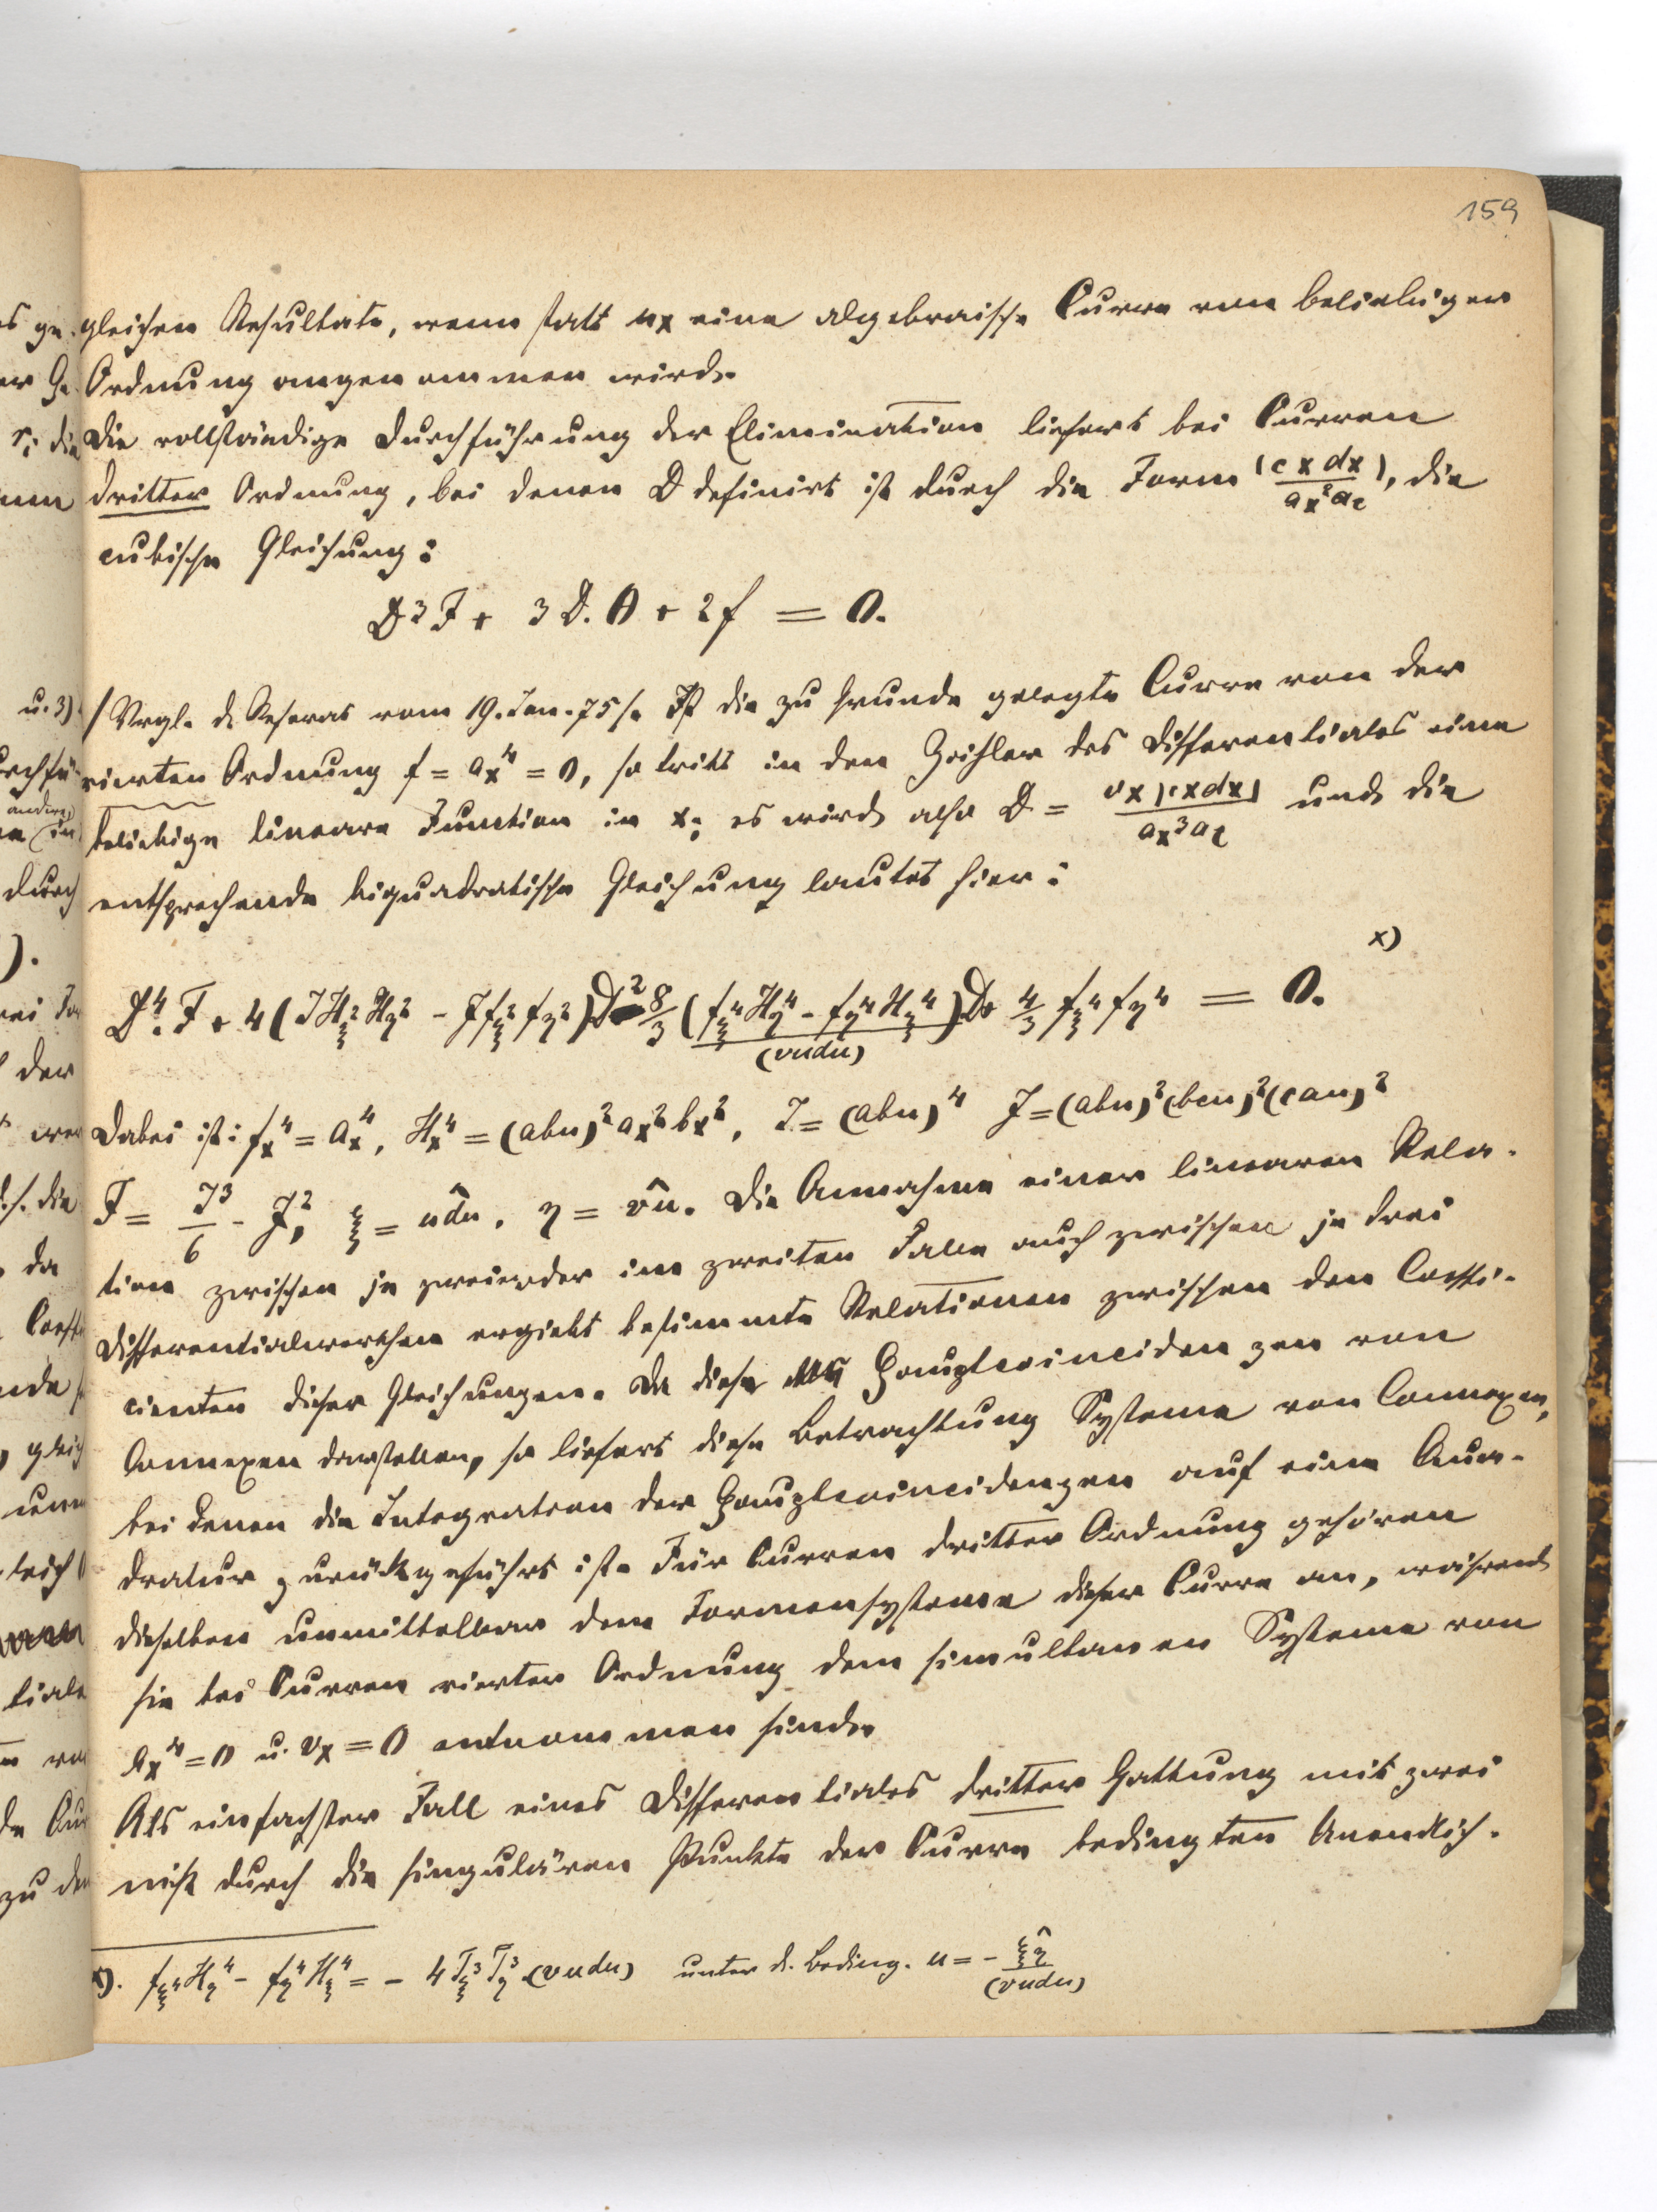 159
gleichen Resultate, wenn statt ux eine algebraische Curve von beliebiger
Ordnung angenommen wird.
Die vollständige Durchführung der Elimination liefert bei Curven
dritter Ordnung, bei denen D definirt ist durch die Form (c x dx) / ax² ac, die
cubische Gleichung:
D³ F + 3 D. Θ + 2 f = 0.
/ Vrgl. d. Referat vom 19. Jan. 75/. Ist die zu Grunde gelegte Curve von der
vierten Ordnung f = ax⁴ = 0, so tritt in den Zähler des Differentiales eine
beliebige lineare Function in x; es wird also D = vx (cxdx) / ax³ ac und die
entsprechende biquadratische Gleichung lautet hier:
x)
D⁴. F + 4 (J Hξ² Hη² - J fξ² fη²) D² 8/3 (fξ⁴ Hη⁴ - fη⁴ Hξ⁴) / (vudu) D + 4/3 fξ⁴ fη⁴ = 0.
Dabei ist: fx⁴ = ax⁴, Hx⁴ = (abu)² ax² bx², J = (abu)⁴ J = (abu)² (bcu)² (cau)²
F = J³/6 - J², ξ = u͡du, η = v͡u. Die Annahme einer linearen Rela-
tion zwischen je zweien oder im zweiten Falle auch zwischen je drei
Differentialwerthen ergiebt bestimmte Relationen zwischen den Coeffi-
cienten dieser Gleichungen. Da diese Hauptcoincidenzen von
Connexen darstellen, so liefert diese Betrachtung Systeme von Connexen,
bei denen die Integration der Hauptcoincidenzen auf eine Qua-
dratur zurückgeführt ist. Für Curven dritter Ordnung gehören
dieselben unmittelbar dem Formensysteme dieser Curve an, während
sie bei Curven vierter Ordnung dem simultanen Systeme von
ax⁴ = 0 u. vx = 0 entnommen sind.
Als einfachster Fall eines Differentiales dritter Gattung mit zwei
nicht durch die singulären Punkte der Curve bedingten Unendlich-
x). fξ⁴ Hη⁴ - fη⁴ Hξ⁴ = - 4 Tξ³ Tη³ (vudu) unter d. Beding. u = - ξ͡η / (vudu)